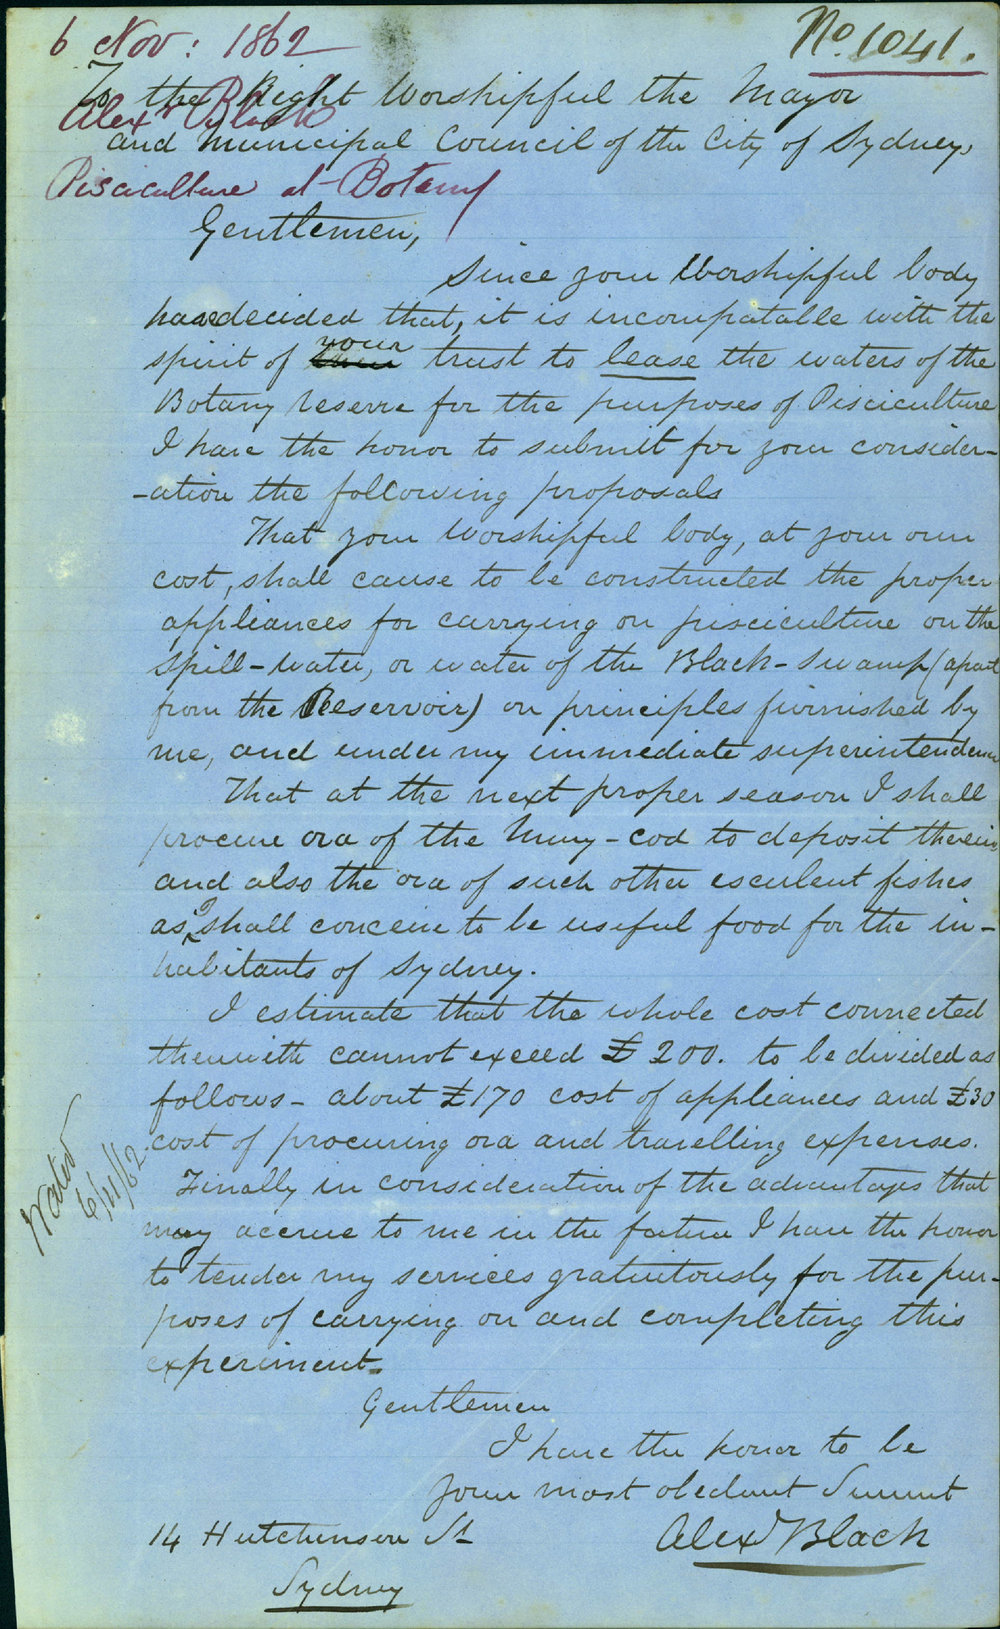 6 Nov: 1862
No. 1041.
To the Right Worshipful the Mayor
Alexr Black
and Municipal Council of the City of Sydney,
Pisciculture at Botany
Gentlemen,
Since your Worshipful body
have decided that, it is incompatable with the
spirit of your trust to lease the waters of the
Botany reserve for the purposes of Pisciculture
I have the honor to submit for your consider-
-ation the following proposals
That your Worshipful body, at your own
cost, shall cause to be constructed the proper
appliances for carrying on pisciculture on the
Spill-water, or water of the Black-Swamp (apart
from the Reservoir) on principles furnished by
me, and under my immediate superintendence
That at the next proper season I shall
procure ova of the Murry-cod to deposit therein
and also the ova of such other esculent fishes
as I shall conceive to be useful food for the in-
habitants of Sydney.
I estimate that the whole cost connected
therewith cannot exceed £200. to be divided as
follows - about £170 cost of appliances and £30
cost of procuring ova and travelling expenses.
Noted
6/11/62
Finally in consideration of the advantages that
may accrue to me in the future I have the honor
to tender my services gratuitously for the pur-
poses of carrying on and completing this
experiment.
Gentlemen
I have the honor to be
your most obedient Servant
14 Hutchinson St
Alexr Black
Sydney